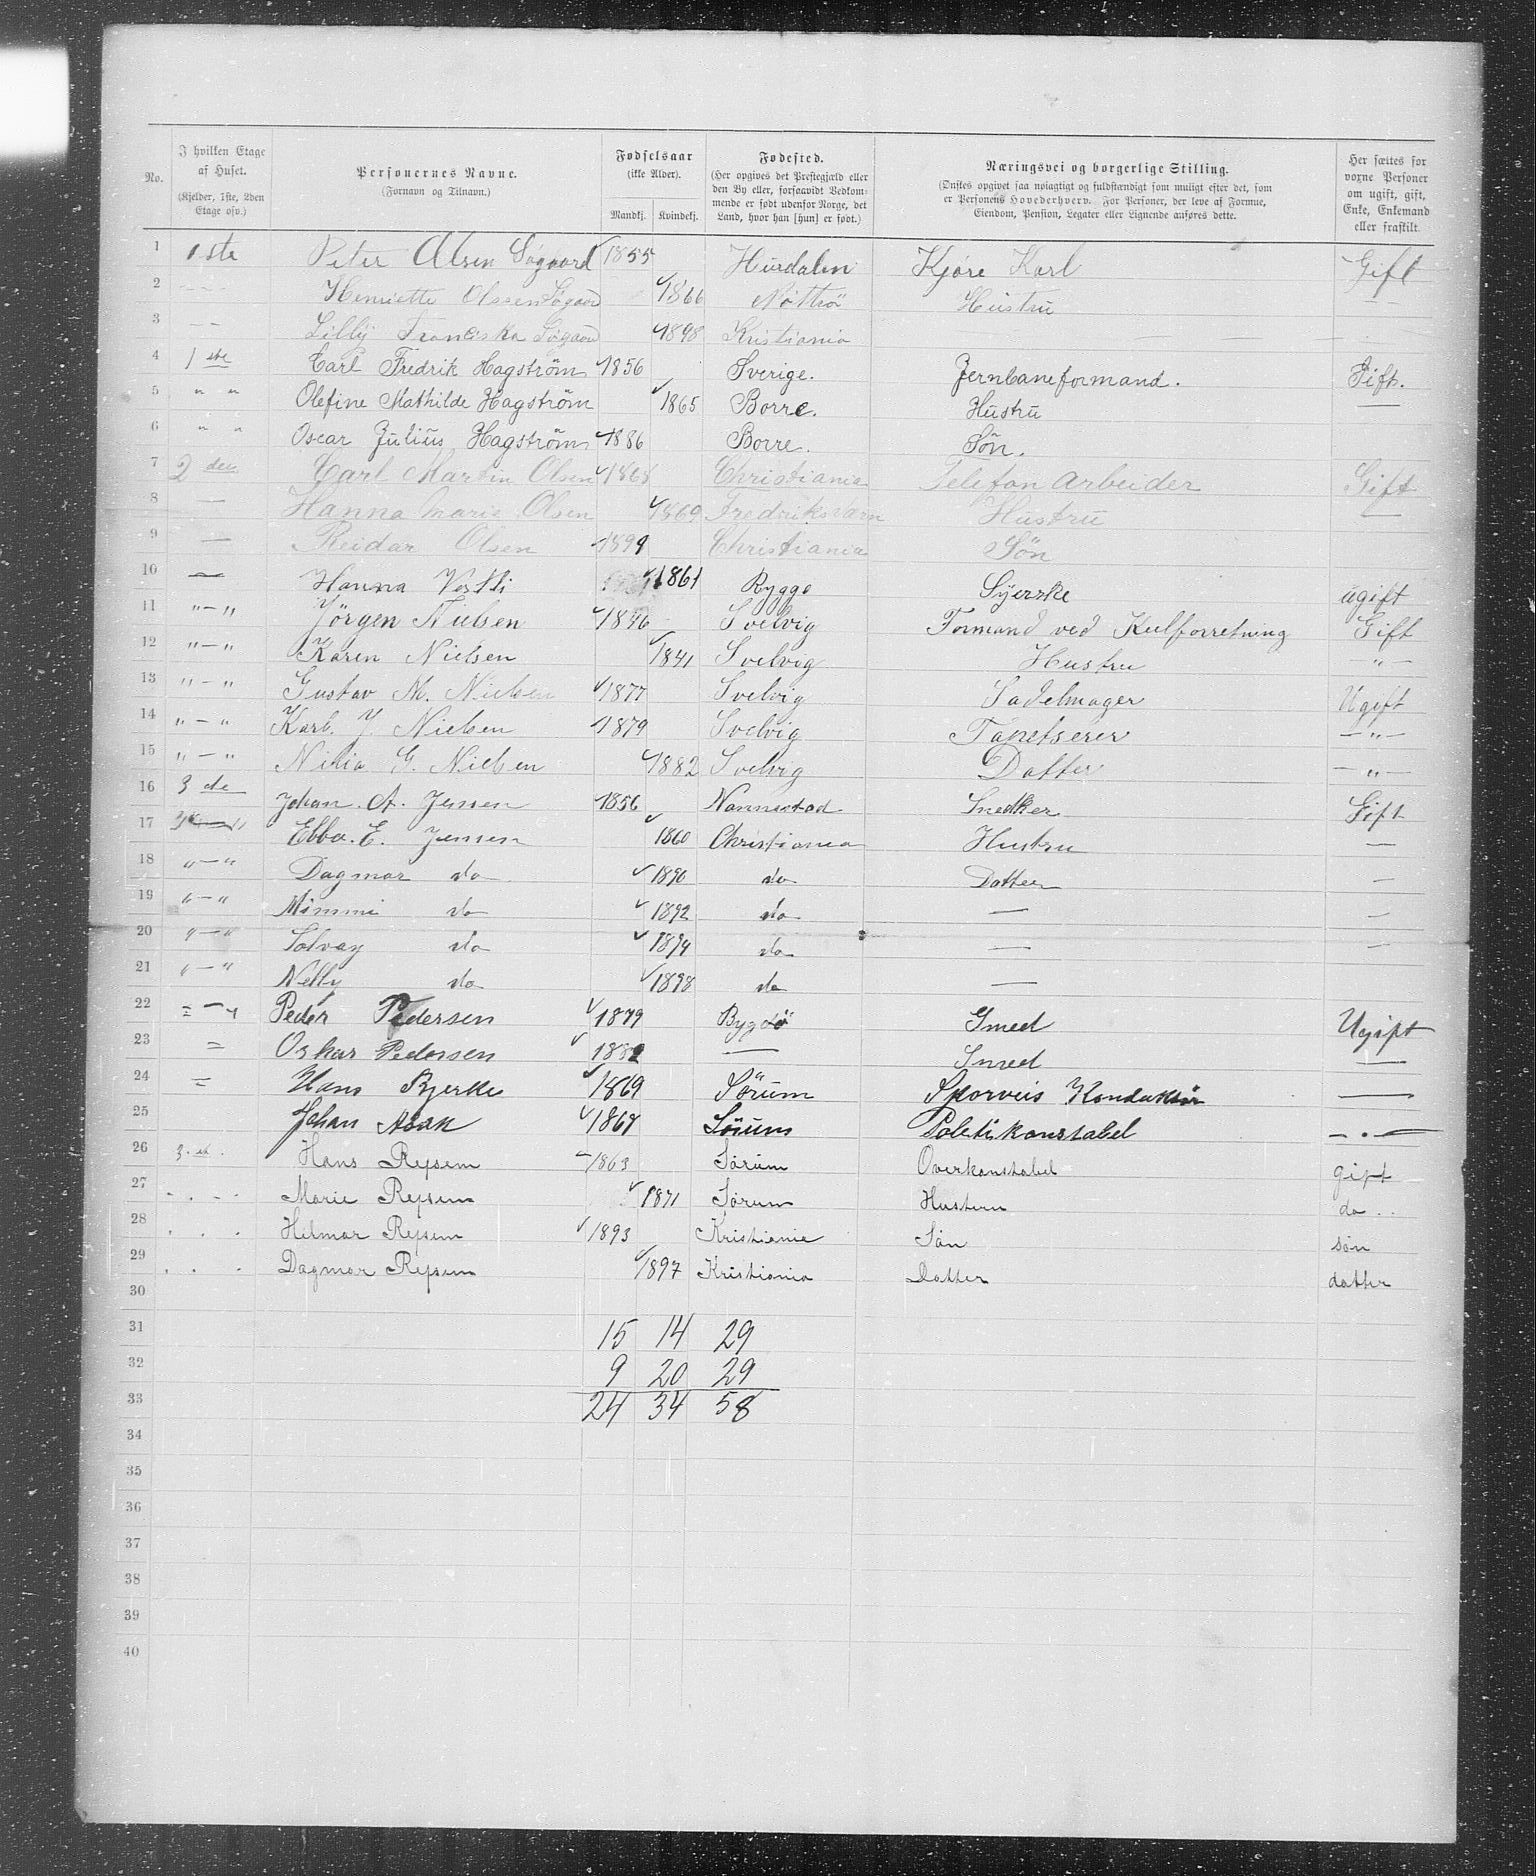 No. | I hvilken Etage af Huset. (Kjelder, 1ste, 2den Etage osv.) | Personernes Navne. (Fornavn og Tilnavn.) | Fødselsaar (ikke Alder). Mandkj. | Kvindekj. | Fødested. (Her opgives det Prestegjæld eller den By eller, forsaavidt Vedkommende er født udenfor Norge, det Land, hvor han [hun] er født.) | Næringsvei og borgerlige Stilling. (Ønskes opgivet saa nøiagtigt og fuldstændigt som muligt efter det, som er Personens Hovederhverv. For Personer, der leve af Formue, Eiendom, Pension, Legater eller Lignende anføres dette. | Her sættes for vorne Personer om ugift, gift, Enke, Enkemand eller fraskilt.
1 1ste Peter Olsen Søgaard 1855 Hurdalen Kjøre Karl Gift
2 Henriette Olssen Søgaard 1866 Nøtterö Hustru —
3 Lilly Franciska Søgaard 1898 Kristiania
4 1ste Carl Fredrik Hagström 1856 Sverige. Jernbaneformand. Gift.
5 " " Olefine Mathilde Hagström 1865 Borre. Hustru —
6 " " Oscar Julius Hagström 1886 Borre. Søn.
7 2den Carl Martin Olsen 1868 Christiania Telefon Arbeider Gift
8 — Hanna Marie Olsen 1869 Fredriksværn Hustru —
9 — Reidar Olsen 1899 Christiania Søn
10 — Hanna Vestli 1861 Rygge Syerske ugift
11 "—" Jörgen Nielsen 1846 Svelvig Formand ved Kulforretning Gift
12 "—" Karen Nielsen 1841 Svelvig Hustru —"—
13 "—" Gustav M. Nielsen 1877 Svelvig Sadelmager Ugift
14 "—" Karl. J. Nielsen 1879 Svelvig Tapetserer —"—
15 "—" G. Nielsen 1882 Svelvig Datter —"—
16 3de Johan. A. Jensen 1856 Nannestad Snedker Gift
17 Ebba. E. Jensen 1860 Christiania Hustru —
18 "—" Dagmar do 1890 do Datter —
19 "—" Mimmi do 1892 do — —
20 "—" Solvay do 1894 do — —
21 "—" Nelly do 1898 do —
22 Peder Pedersen 1879 Bygdö Smed Ugift
23 = Oskar Pedersen 1882 — Smed —
24 = Hans Bjerke 1869 Sörum Sporveis Konduktör —
25 Johan Asak 1868 Sörum Politikonstabel —.—
26 Hans Rejsem 1863 Sørum Overkonstabel gift
27 Marie Rejsem 1871 Sørum Hustru do
28 Hilmar Rejsem 1893 Kristiania Søn søn
29 Dagmar Rejsem 1897 Kristiania Datter datter
30
31 15 14 29
32 9 20 29
33 24 34 58
34
35
36
37
38
39
40